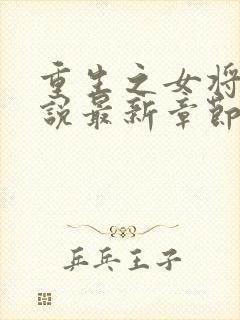 重生之女将
說最新章節
乒乓王子